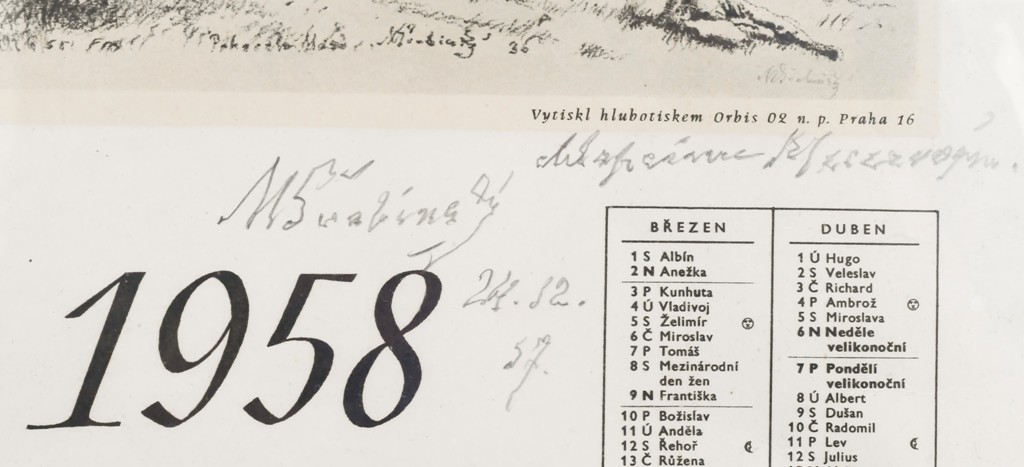 36
Vytiskl hlubotiskem Orbis 02 n. p. Praha 16
MŠvabinský
24. 12.
57.
1958
BŘEZEN
1 S Albín
2 N Anežka
3 P Kunhuta
4 Ú Vladivoj
5 S Želimír
6 Č Miroslav
7 P Tomáš
8 S Mezinárodní
den žen
9 N Františka
10 P Božislav
11 Ú Anděla
12 S Řehoř
13 Č Růžena
DUBEN
1 Ú Hugo
2 S Veleslav
3 Č Richard
4 P Ambrož
5 S Miroslava
6 N Neděle
velikonoční
7 P Pondělí
velikonoční
8 Ú Albert
9 S Dušan
10 Č Radomil
11 P Lev
12 S Julius